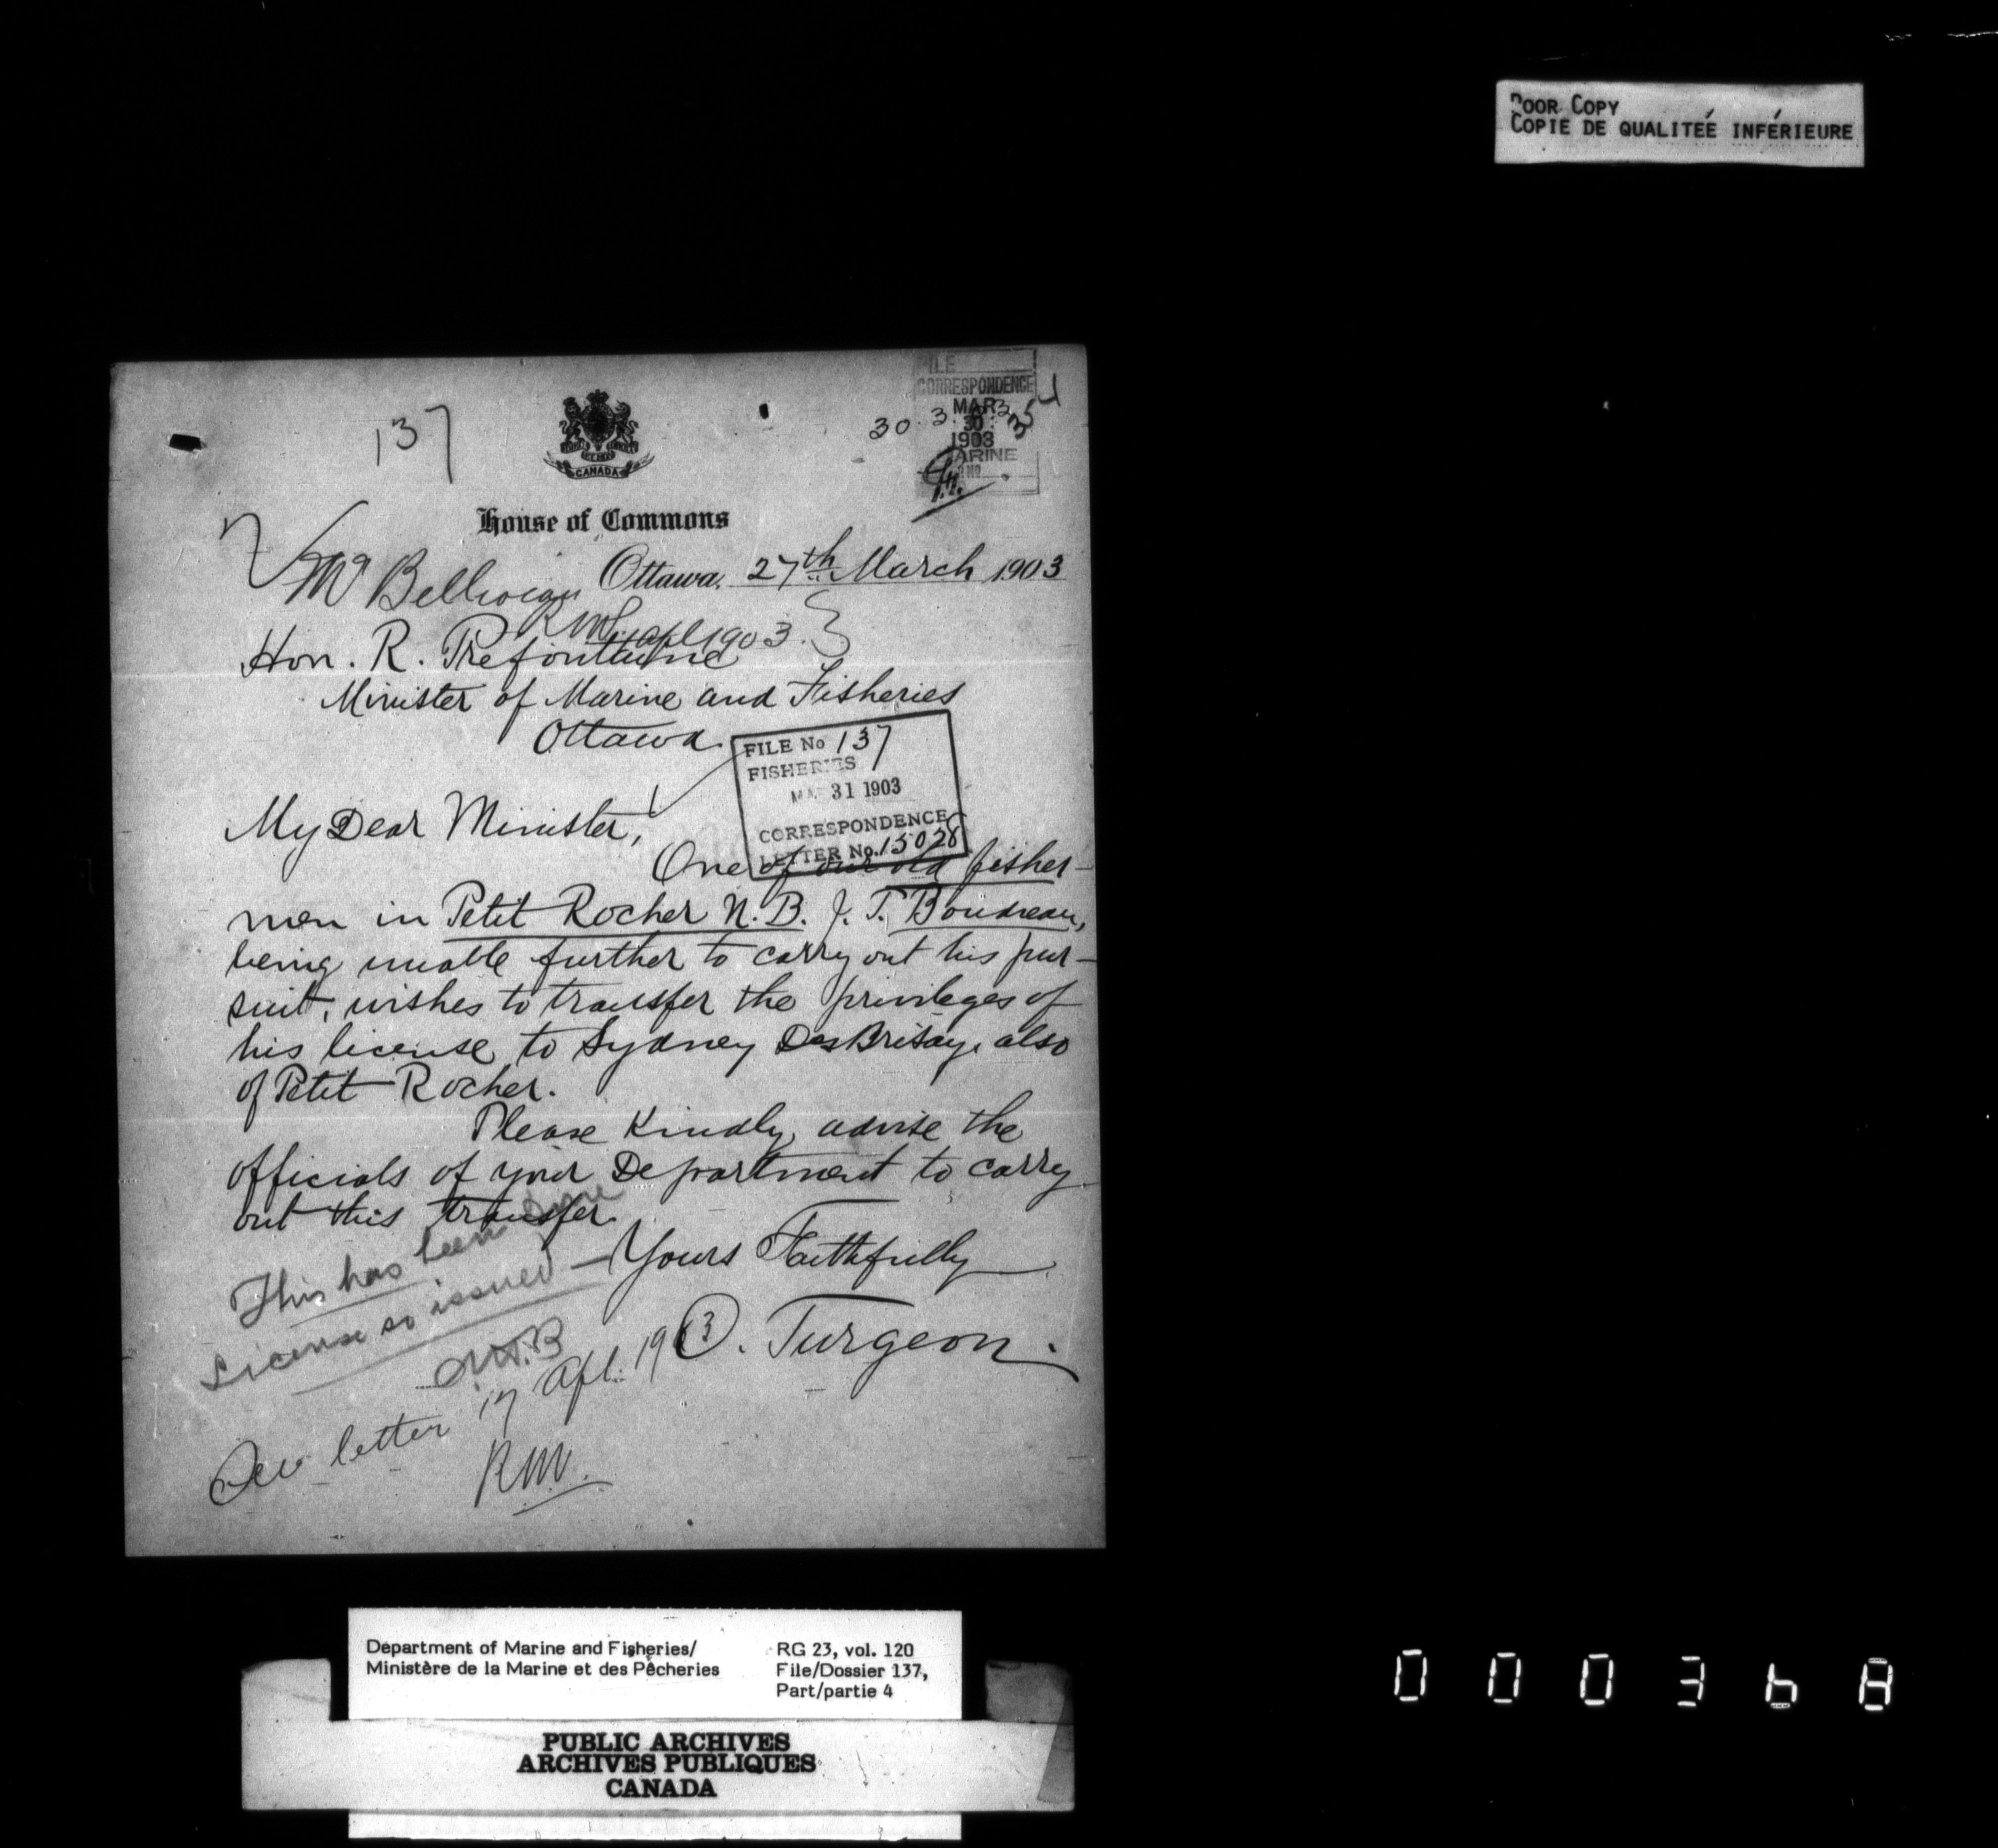 POOR COPY
COPIE DE QUALITEÉ INFÉRIEURE
FILE
CORRESPONDENCE
MAR
30
1903
MARINE
30.3.
137
CANADA
House of Commons
Ottawa, 27th March 1903
Mr
RW apl 1903.
Hon. R. Prefontaine
Minister of Marine and Fisheries
Ottawa.
FILE No 137
FISHERIES
MAR 31 1903
CORRESPONDENCE
LETTER No. 15028
My Dear Minister,
One of our old fisher-
men in Petit Rocher N.B. J. T. Boudreau,
being unable further to carry out his pur-
suit, wishes to transfer the privileges of
his license to Sydney DesBrisay, also
of Petit Rocher.
Please Kindly advise the
officials of your Department to carry
out this transfer.
Yours Faithfully
O. Turgeon.
This has been done
License so issued
See letter 17 Apl. 1903
RW.
Department of Marine and Fisheries/
Ministère de la Marine et des Pêcheries
RG 23, vol. 120
File/Dossier 137,
Part/partie 4
PUBLIC ARCHIVES
ARCHIVES PUBLIQUES
CANADA
000368